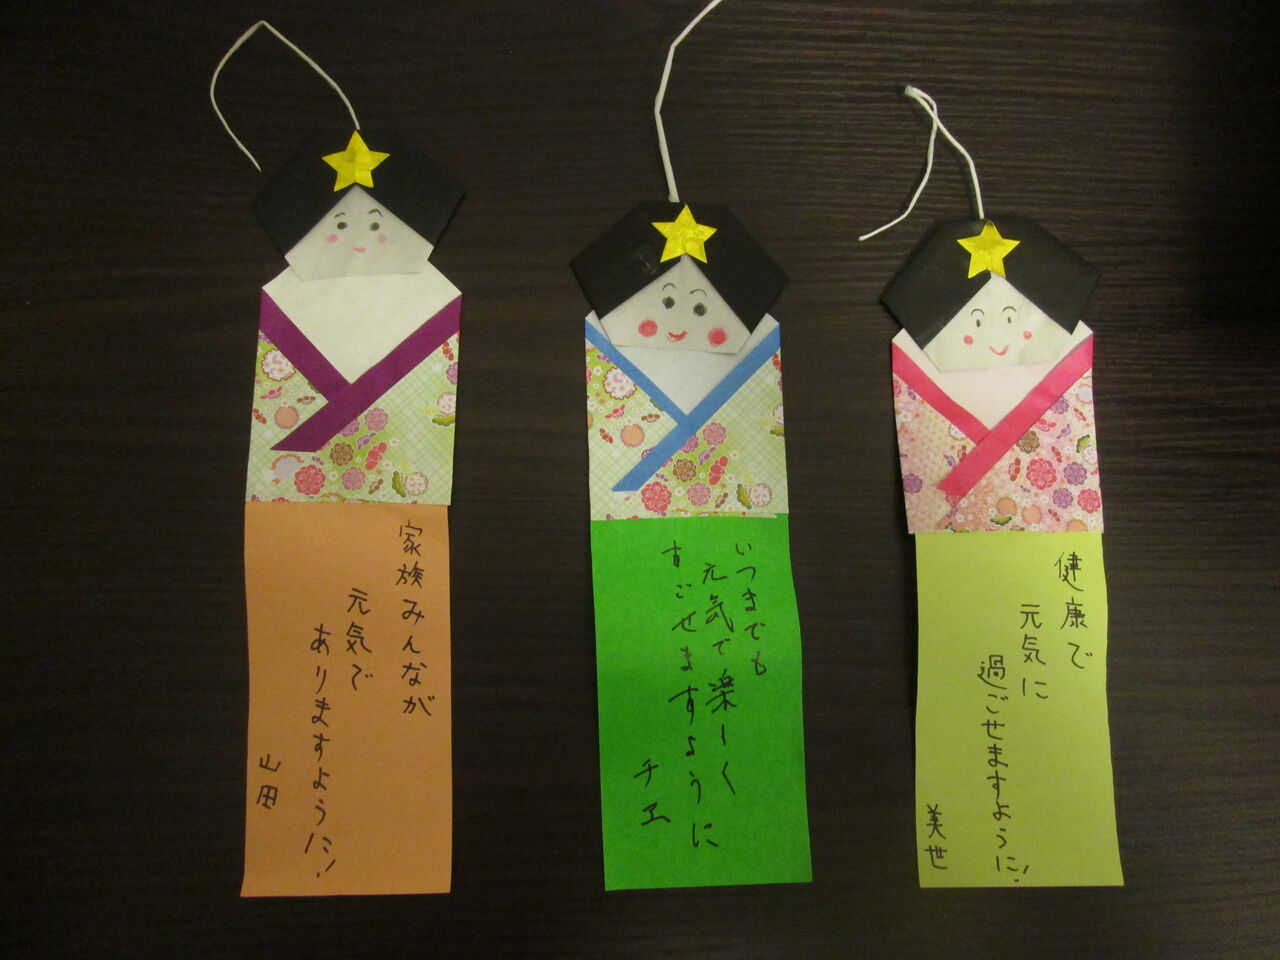 家族みんなが
元気で
ありますように!
山田
いつまでも
元気で楽しく
すごせますように
チヱ
健康で
元気に
過ごせますように!
美世